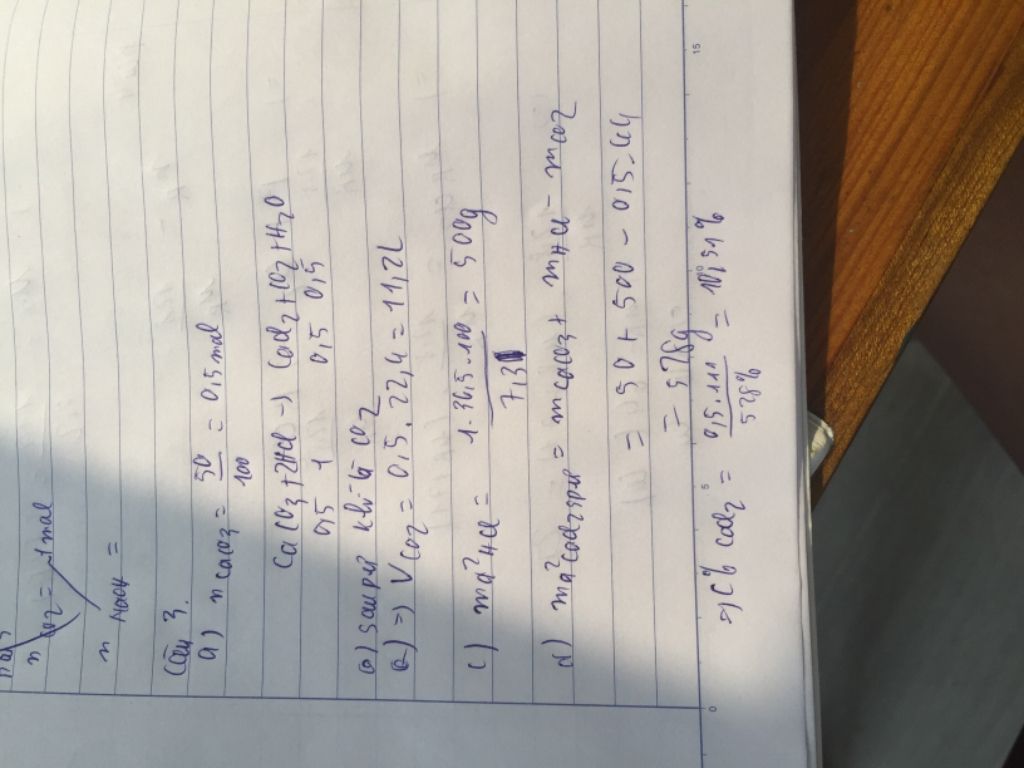 n CO2 = 1 mol
n NaOH =
Câu 3.
a) n CaCO3 = 50/100 = 0,5 mol
CaCO3 + 2HCl -> CaCl2 + CO2 + H2O
0,5 1 0,5 0,5
khí là CO2
=> V CO2 = 0,5 . 22,4 = 11,2L
c) md2 HCl = 1.36,5.100/7,3 = 500g
d) md2 CaCl2 spư = m CaCO3 + m HCl - m CO2
= 50 + 500 - 0,5.44
= 528g
=> C% CaCl2 = 0,5.111/528 % = 10,51%
0 5 15